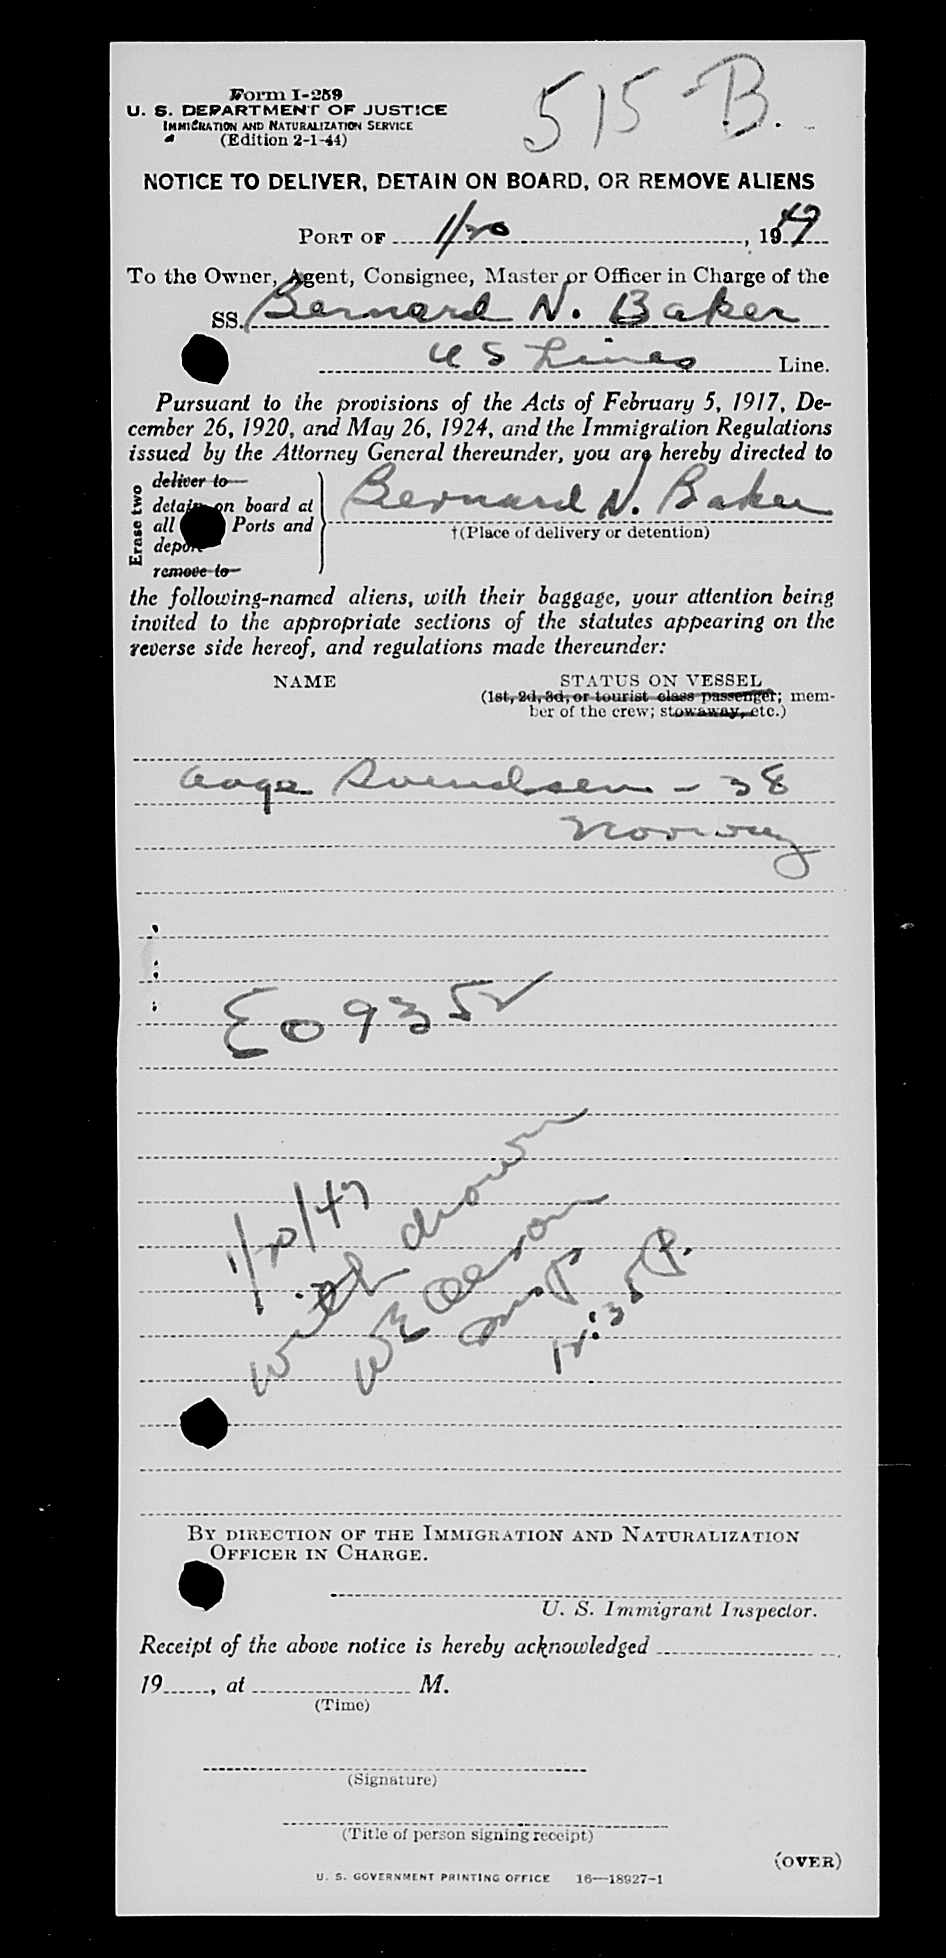 Form I-259
U. S. DEPARTMENT OF JUSTICE
IMMIGRATION AND NATURALIZATION SERVICE
(Edition 2-1-44)
515-B.
NOTICE TO DELIVER, DETAIN ON BOARD, OR REMOVE ALIENS
PORT OF 1/20, 1947
To the Owner, Agent, Consignee, Master or Officer in Charge of the
SS. Bernard N. Baker
U S Lines Line.
Pursuant to the provisions of the Acts of February 5, 1917, De-
cember 26, 1920, and May 26, 1924, and the Immigration Regulations
issued by the Attorney General thereunder, you are hereby directed to
Erase two
deliver to
detain on board at
all Ports and
deport
remove to
Bernard N. Baker
†(Place of delivery or detention)
the following-named aliens, with their baggage, your attention being
invited to the appropriate sections of the statutes appearing on the
reverse side hereof, and regulations made thereunder:
NAME
STATUS ON VESSEL
(1st, 2d, 3d, or tourist class passenger; mem-
ber of the crew; stowaway, etc.)
Aage Svendsen - 38
Norway
E09352
1/20/47
withdrawn
12:35 P.
BY DIRECTION OF THE IMMIGRATION AND NATURALIZATION
OFFICER IN CHARGE.
U. S. Immigrant Inspector.
Receipt of the above notice is hereby acknowledged
19, at M.
(Time)
(Signature)
(Title of person signing receipt)
(OVER)
U. S. GOVERNMENT PRINTING OFFICE 16—18927-1